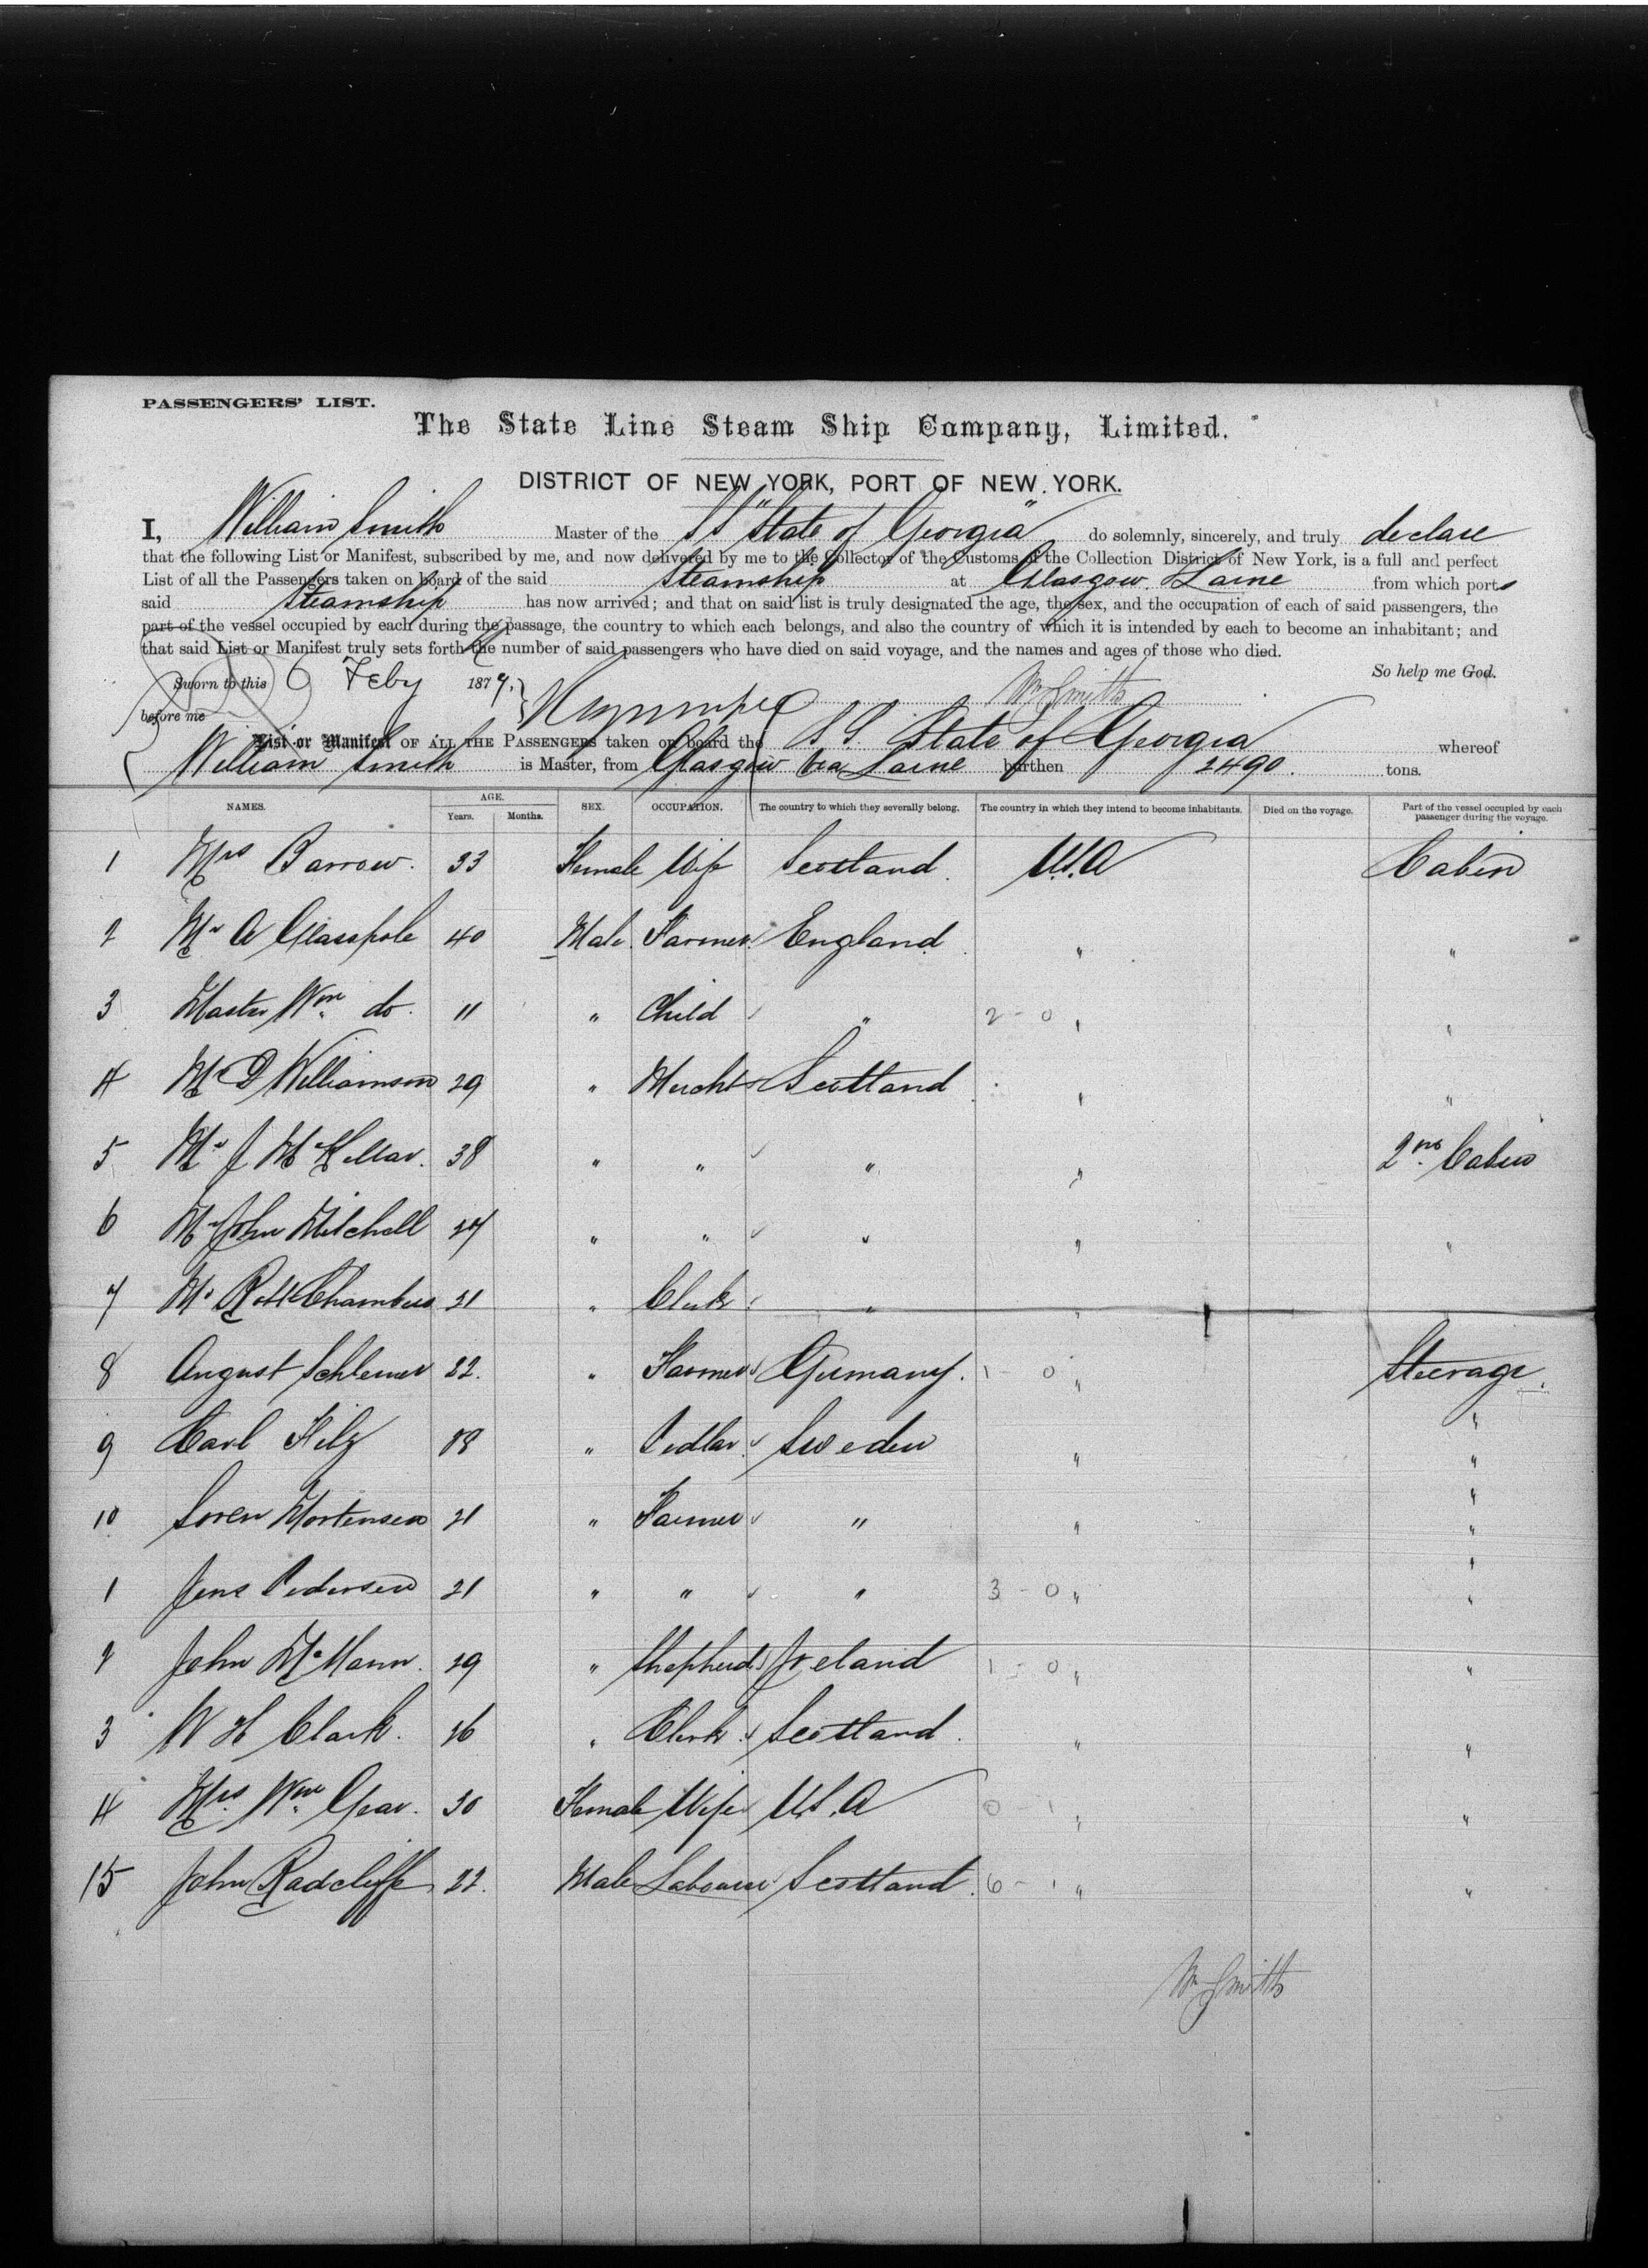 PASSENGERS' LIST.
The State Line Steam Ship Company, Limited.
DISTRICT OF NEW YORK, PORT OF NEW YORK.
I, William Smith Master of the SS "State of Georgia" do solemnly, sincerely, and truly declare
that the following List or Manifest, subscribed by me, and now delivered by me to the Collector of the Customs of the Collection District of New York, is a full and perfect
List of all the Passengers taken on board of the said Steamship at Glasgow. Larne from which ports
said Steamship has now arrived; and that on said list is truly designated the age, the sex, and the occupation of each of said passengers, the
part of the vessel occupied by each during the passage, the country to which each belongs, and also the country of which it is intended by each to become an inhabitant; and
that said List or Manifest truly sets forth the number of said passengers who have died on said voyage, and the names and ages of those who died.
So help me God.
Sworn to this 6 Feby 1879.
before me Wm Smith
List or Manifest OF ALL THE PASSENGERS taken on board the S.S. State of Georgia whereof
William Smith is Master, from Glasgow via Larne burthen 2490. tons.
NAMES. AGE. Years. Months. SEX. OCCUPATION. The country to which they severally belong. The country in which they intend to become inhabitants. Died on the voyage. Part of the vessel occupied by each passenger during the voyage.
1 Mrs Barrow. 33 Female Wife Scotland. U.S.A Cabin
2 Mr A Glasspole 40 Male Farmer England " "
3 Master Wm do. 11 " Child " 2 - 0 " "
4 Mr D Williamson 29 " Mercht Scotland " "
5 Mr J McKellar. 38 " " " " 2nd Cabin
6 Mr John Mitchell 24 " " " " "
7 Mr Robt Chambers 21 " Clerk " "
8 August Schlemer 22. " Farmer Germany. 1 - 0 " Steerage.
9 Carl Filz 18 " Pedlar Sweden " "
10 Soren Mortensen 21 " Farmer " " "
1 Jens Pedersen 21 " " " 3 - 0 " "
2 John McMann. 29 " Shepherd Ireland 1 - 0 " "
3 W H Clark. 26 " Clerk Scotland. " "
4 Mrs Wm Gear. 30 Female Wife U.S.A 0 - 1 " "
15 John Radcliffe 22. Male Labourer Scotland. 6 - 1 " "
Wm Smith